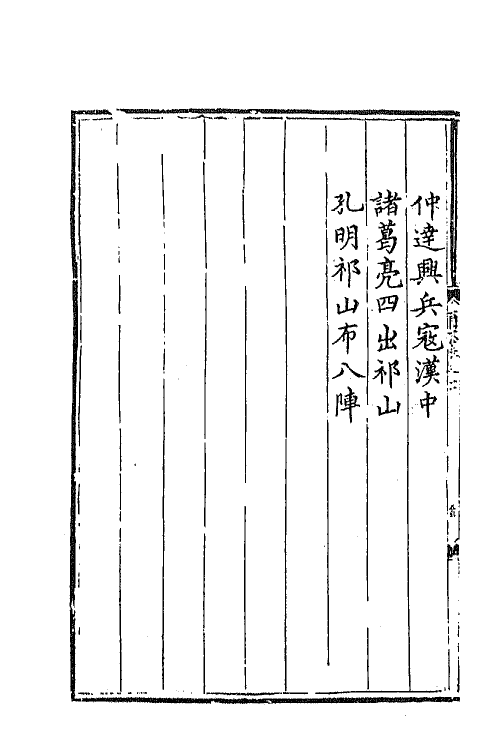 仲達興兵寇漢中
諸葛亮四出祁山
孔明祁山布八陣